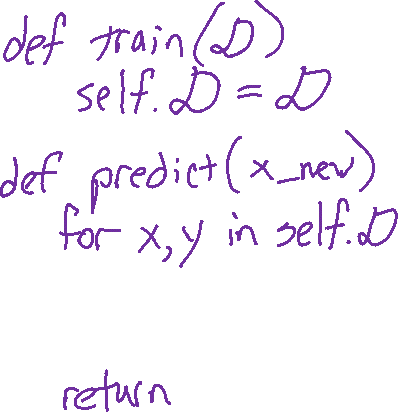 def train(D)
self.D = D
def predict(x_new)
for x,y in self.D
return